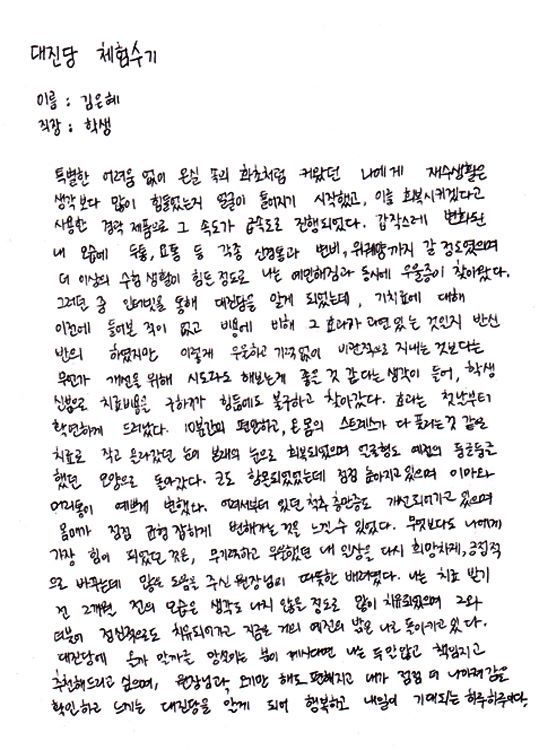 대진당 체험수기
이름 : 김은혜
직장 : 학생
특별한 어려움 없이 온실 속의 화초처럼 커왔던 나에게 재수생활은
생각보다 많이 힘들었는지 얼굴이 틀어지기 시작했고, 이를 회복시키겠다고
사용한 경락 제품으로 그 속도가 급속도로 진행되었다. 갑작스레 변화된
내 모습에 두통, 요통 등 각종 신경통과 변비, 위궤양까지 갈 정도였으며
더 이상의 수험생활이 힘든 정도로 나는 예민해짐과 동시에 우울증이 찾아왔다.
그러던 중 인터넷을 통해 대진당을 알게 되었는데, 기치료에 대해
이전에 들어본 적이 없고 비용에 비해 그 효과가 과연 있는 것인지 반신
반의 하였지만 이렇게 우울하고 기력없이 비관적으로 지내는 것보다는
무언가 개선을 위해 시도라도 해보는게 좋은 것 같다는 생각이 들어, 학생
신분으로 치료비용을 구하기가 힘듦에도 불구하고 찾아갔다. 효과는 첫날부터
확연하게 드러났다. 10분간의 편안하고, 온몸의 스트레스가 다 풀리는것 같은
치료로 작고 올라갔던 눈이 본래의 눈으로 회복되었으며 얼굴형도 예전의 둥글둥글
했던 모양으로 돌아갔다. 코도 함몰되었었는데 점점 높아지고 있으며 이마와
머리통이 예쁘게 변했다. 어려서부터 있던 척추측만증도 개선되어가고 있으며
몸매가 점점 균형 잡히게 변해가는 것을 느낄 수 있었다. 무엇보다도 나에게
가장 힘이 되었던 것은, 무기력하고 우울했던 내 인상을 다시 희망차게, 긍정적
으로 바꾸는데 많은 도움을 주신 원장님의 따뜻한 배려였다. 나는 치료 받기
전 2개월 전의 모습은 생각도 나지 않을 정도로 많이 치유되었으며 그와
더불어 정신적으로도 치유되어가고 지금은 거의 예전의 밝은 나로 돌아가고 있다.
대진당에 온가 말가를 망설이는 분이 계시다면 나는 두말않고 책임지고
추천해드리고 싶으며, 원장님과, 오기만 해도 편해지고 내가 점점 더 나아져감을
확인하고 느끼는 대진당을 알게 되어 행복하고 내일이 기대되는 하루하루다.